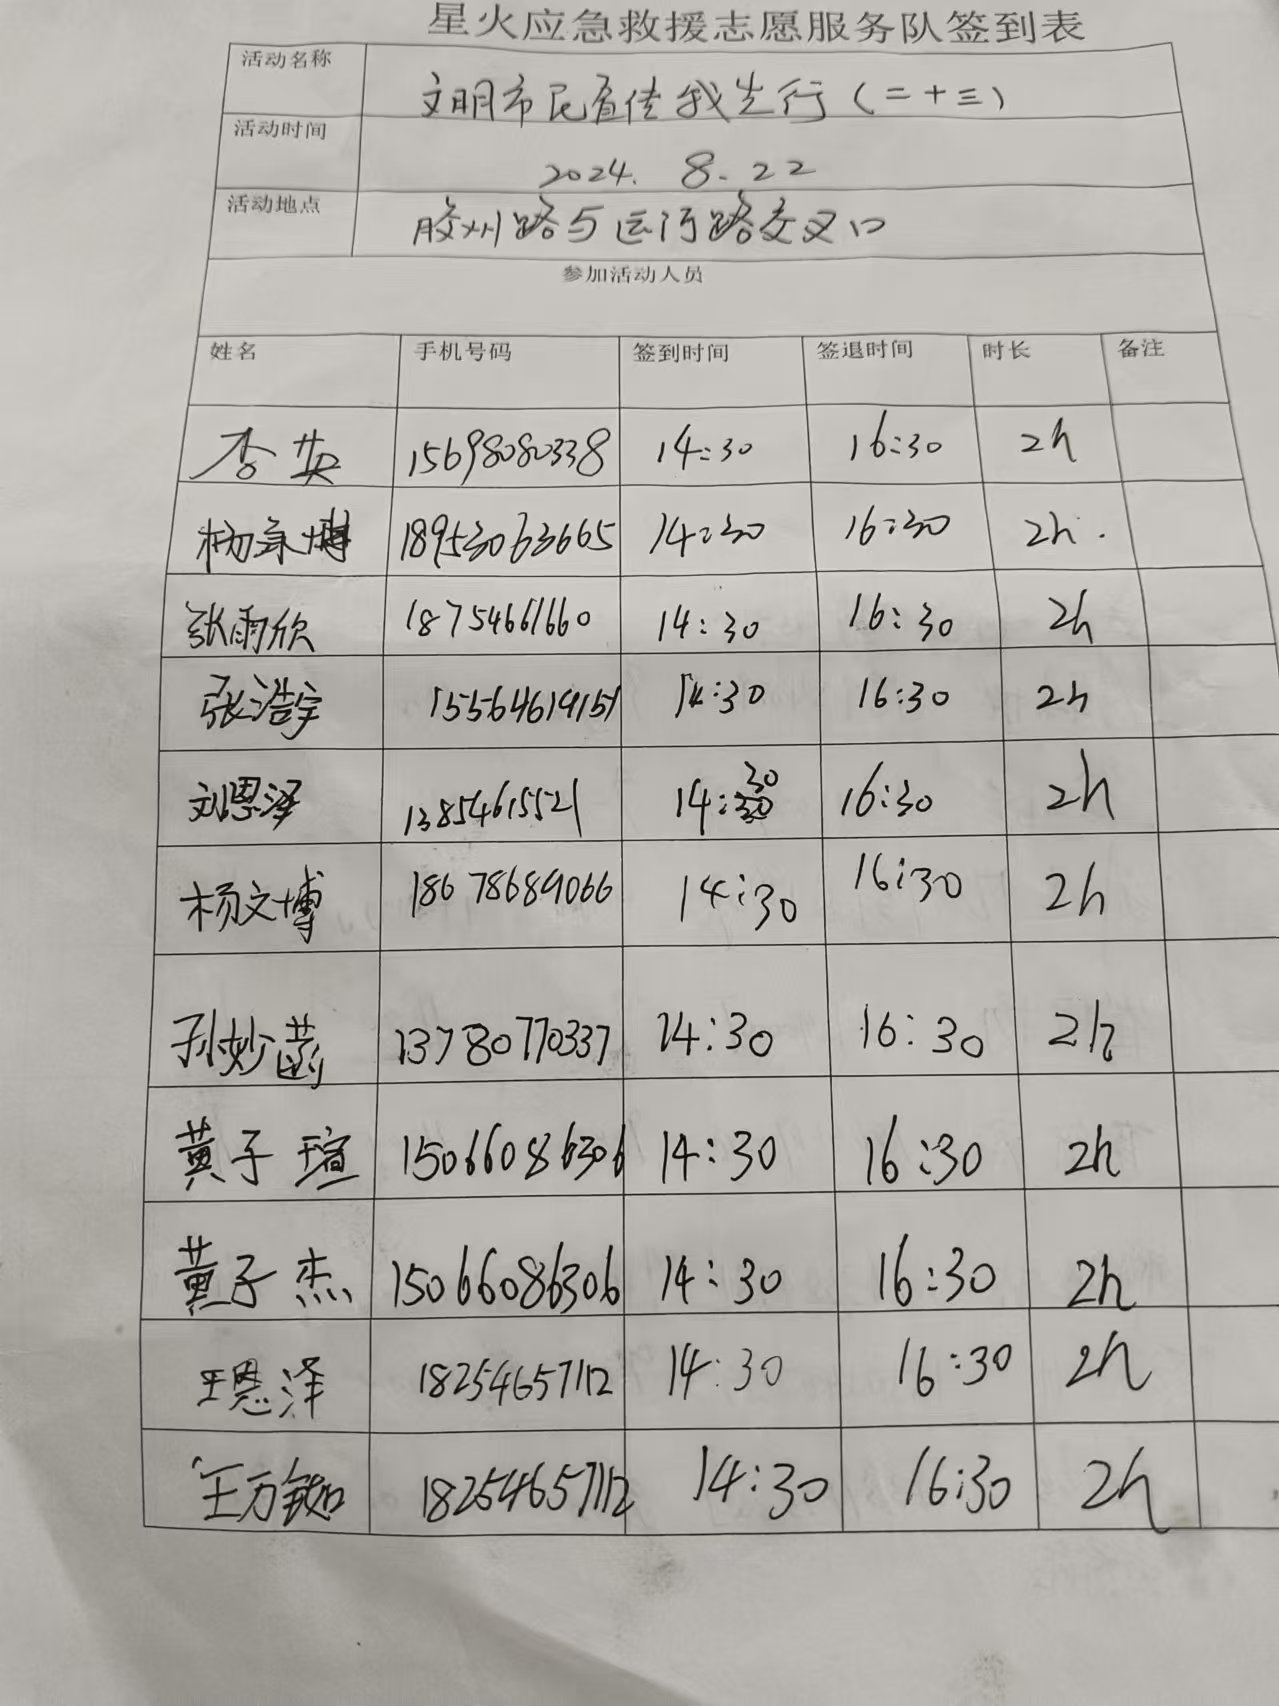 星火应急救援志愿服务队签到表
活动名称 文明市民宣传我先行（二十三）
活动时间 2024. 8. 22
活动地点 胶州路与运河路交叉口
参加活动人员
姓名 手机号码 签到时间 签退时间 时长 备注
李英 15698080338 14:30 16:30 2h
杨永博 18953063665 14:30 16:30 2h.
张雨欣 18754661660 14:30 16:30 2h
张浩宇 15564619151 14:30 16:30 2h
刘恩泽 13854615521 14:30 16:30 2h
杨文博 18678689066 14:30 16:30 2h
孙妙菡 13780770337 14:30 16:30 2h
黄子瑄 15066086306 14:30 16:30 2h
黄子杰 15066086306 14:30 16:30 2h
王恩泽 18254657112 14:30 16:30 2h
王万铷 18254657112 14:30 16:30 2h